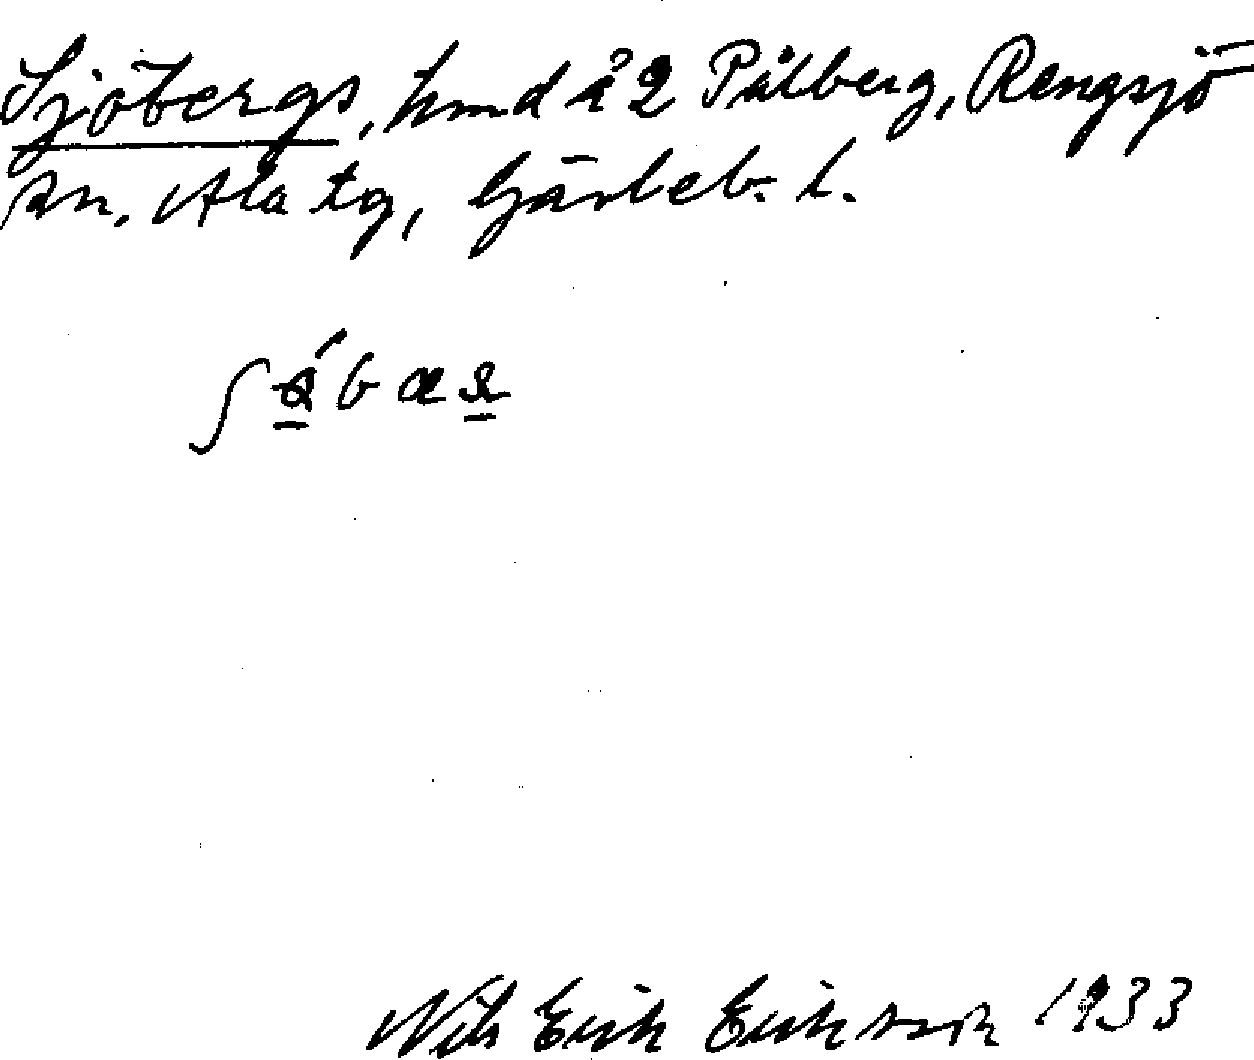 Sjöbergs, hmd å 2 Pålberg, Rengsjö
sn. Ala tg, Gävleb. l.
Nils Erik Eriksson 1933